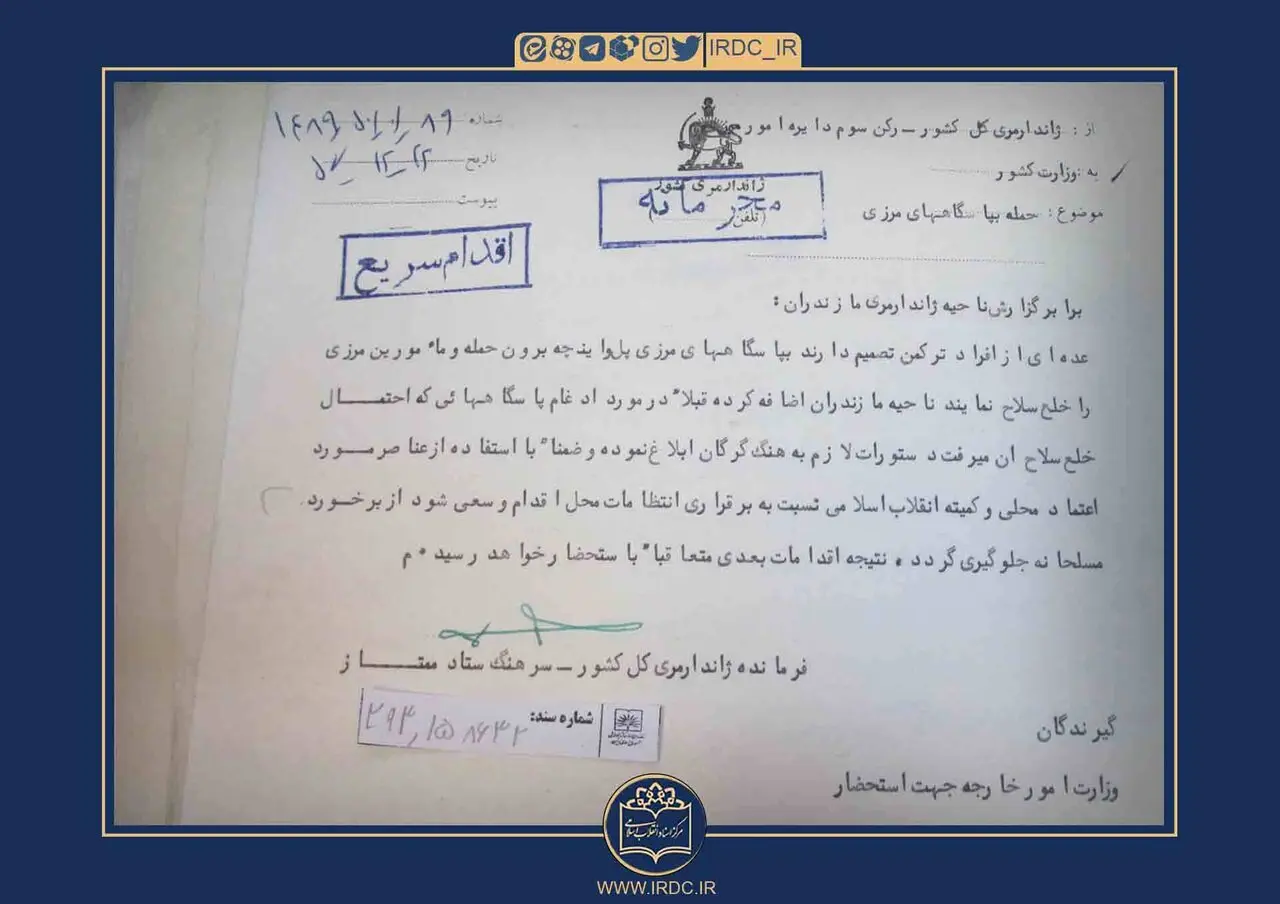 IRDC_IR
از : ژاندارمری کل کشور ــ رکن سوم دایره امور
به : وزارت کشور
موضوع : حمله بپاسگاههای مرزی
ژاندارمری کشور
(تلفن)
محرمانه
شماره
تاریخ ۵۷ـ۱۲ـ۲۲
پیوست
اقدام سریع
برابر گزارش ناحیه ژاندارمری مازندران :
عده ای از افراد ترکمن تصمیم دارند بپاسگاههای مرزی پل و اینچه برون حمله و مأمورین مرزی
را خلع سلاح نمایند ناحیه مازندران اضافه کرده قبلاً در مورد ادغام پاسگاههائی که احتمـــــال
خلع سلاح ان میرفت دستورات لازم به هنگ گرگان ابلاغ نموده و ضمناً با استفاده از عناصر مـــورد
اعتماد محلی و کمیته انقلاب اسلامی نسبت به برقراری انتظامات محل اقدام و سعی شود از برخـورد
مسلحانه جلوگیری گردد . نتیجه اقدامات بعدی متعاقباً باستحضار خواهد رسید . م
فرمانده ژاندارمری کل کشور ــ سرهنگ ستاد ممتـــــاز
شماره سند: ۲۹۳٫۱۵۸۶۳۲
گیرندگان
وزارت امور خارجه جهت استحضار
مرکز اسناد انقلاب اسلامی
WWW.IRDC.IR